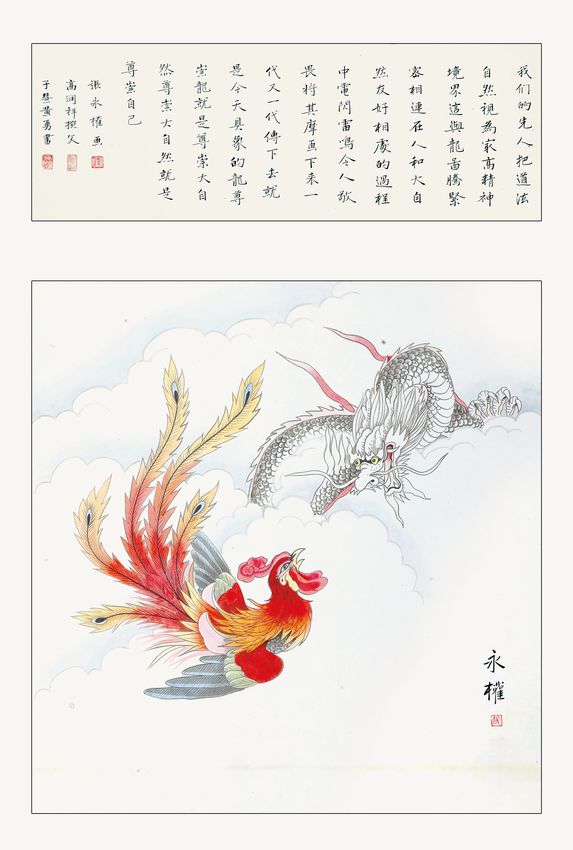 我们的先人把道法
自然視為最高精神
境界這與龍蓄騰緊
密相連在人和大自
然友好相處的過程
中電閃雷鳴令人敬
畏將其摩画下来一
代又一代傳下去就
是今天具象的龍尊
崇龍就是尊崇大自
然尊崇大自然就是
尊崇自己
張永權画
高润祥撰文
黄勇書
永權